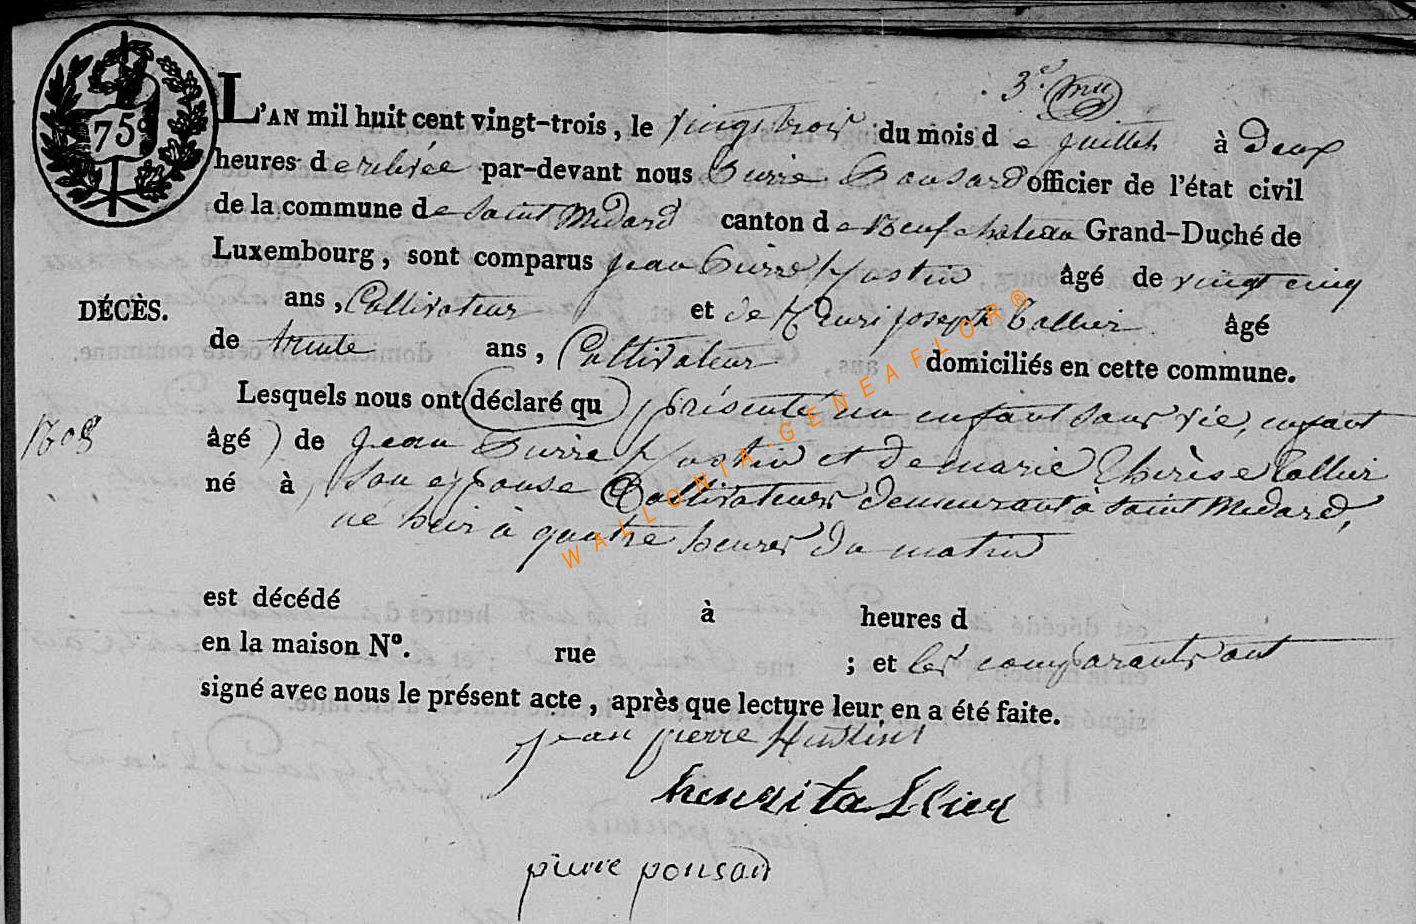 3e.
75c
L'AN mil huit cent vingt-trois, le vingt trois du mois de juillet à deux
heures de relevée par-devant nous Pierre Ponsard officier de l'état civil
de la commune de Saint Medard canton de Neufchateau Grand-Duché de
Luxembourg, sont comparus jean Pierre Hustin âgé de vingt cinq
DÉCÈS.
ans, Cultivateur et de Henri joseph Tallier âgé
de trente ans, Cultivateur domiciliés en cette commune.
Lesquels nous ont déclaré qu présenté un enfant sans vie, enfant
1808
âgé de jean Pierre Hustin et de marie Therèse Tallier
né à son epouse Cultivateurs demeurant à Saint Medard,
né hier à quatre heures du matin
est décédé à heures d
en la maison N°. rue ; et les comparants ont
signé avec nous le présent acte, après que lecture leur en a été faite.
jean pierre Hustin
henri tallier
pierre ponsard
WALLONIA-GENEAFLOR®